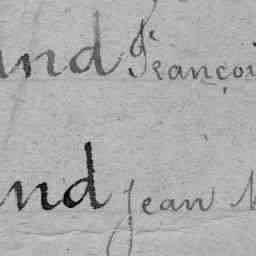 and François
and Jean